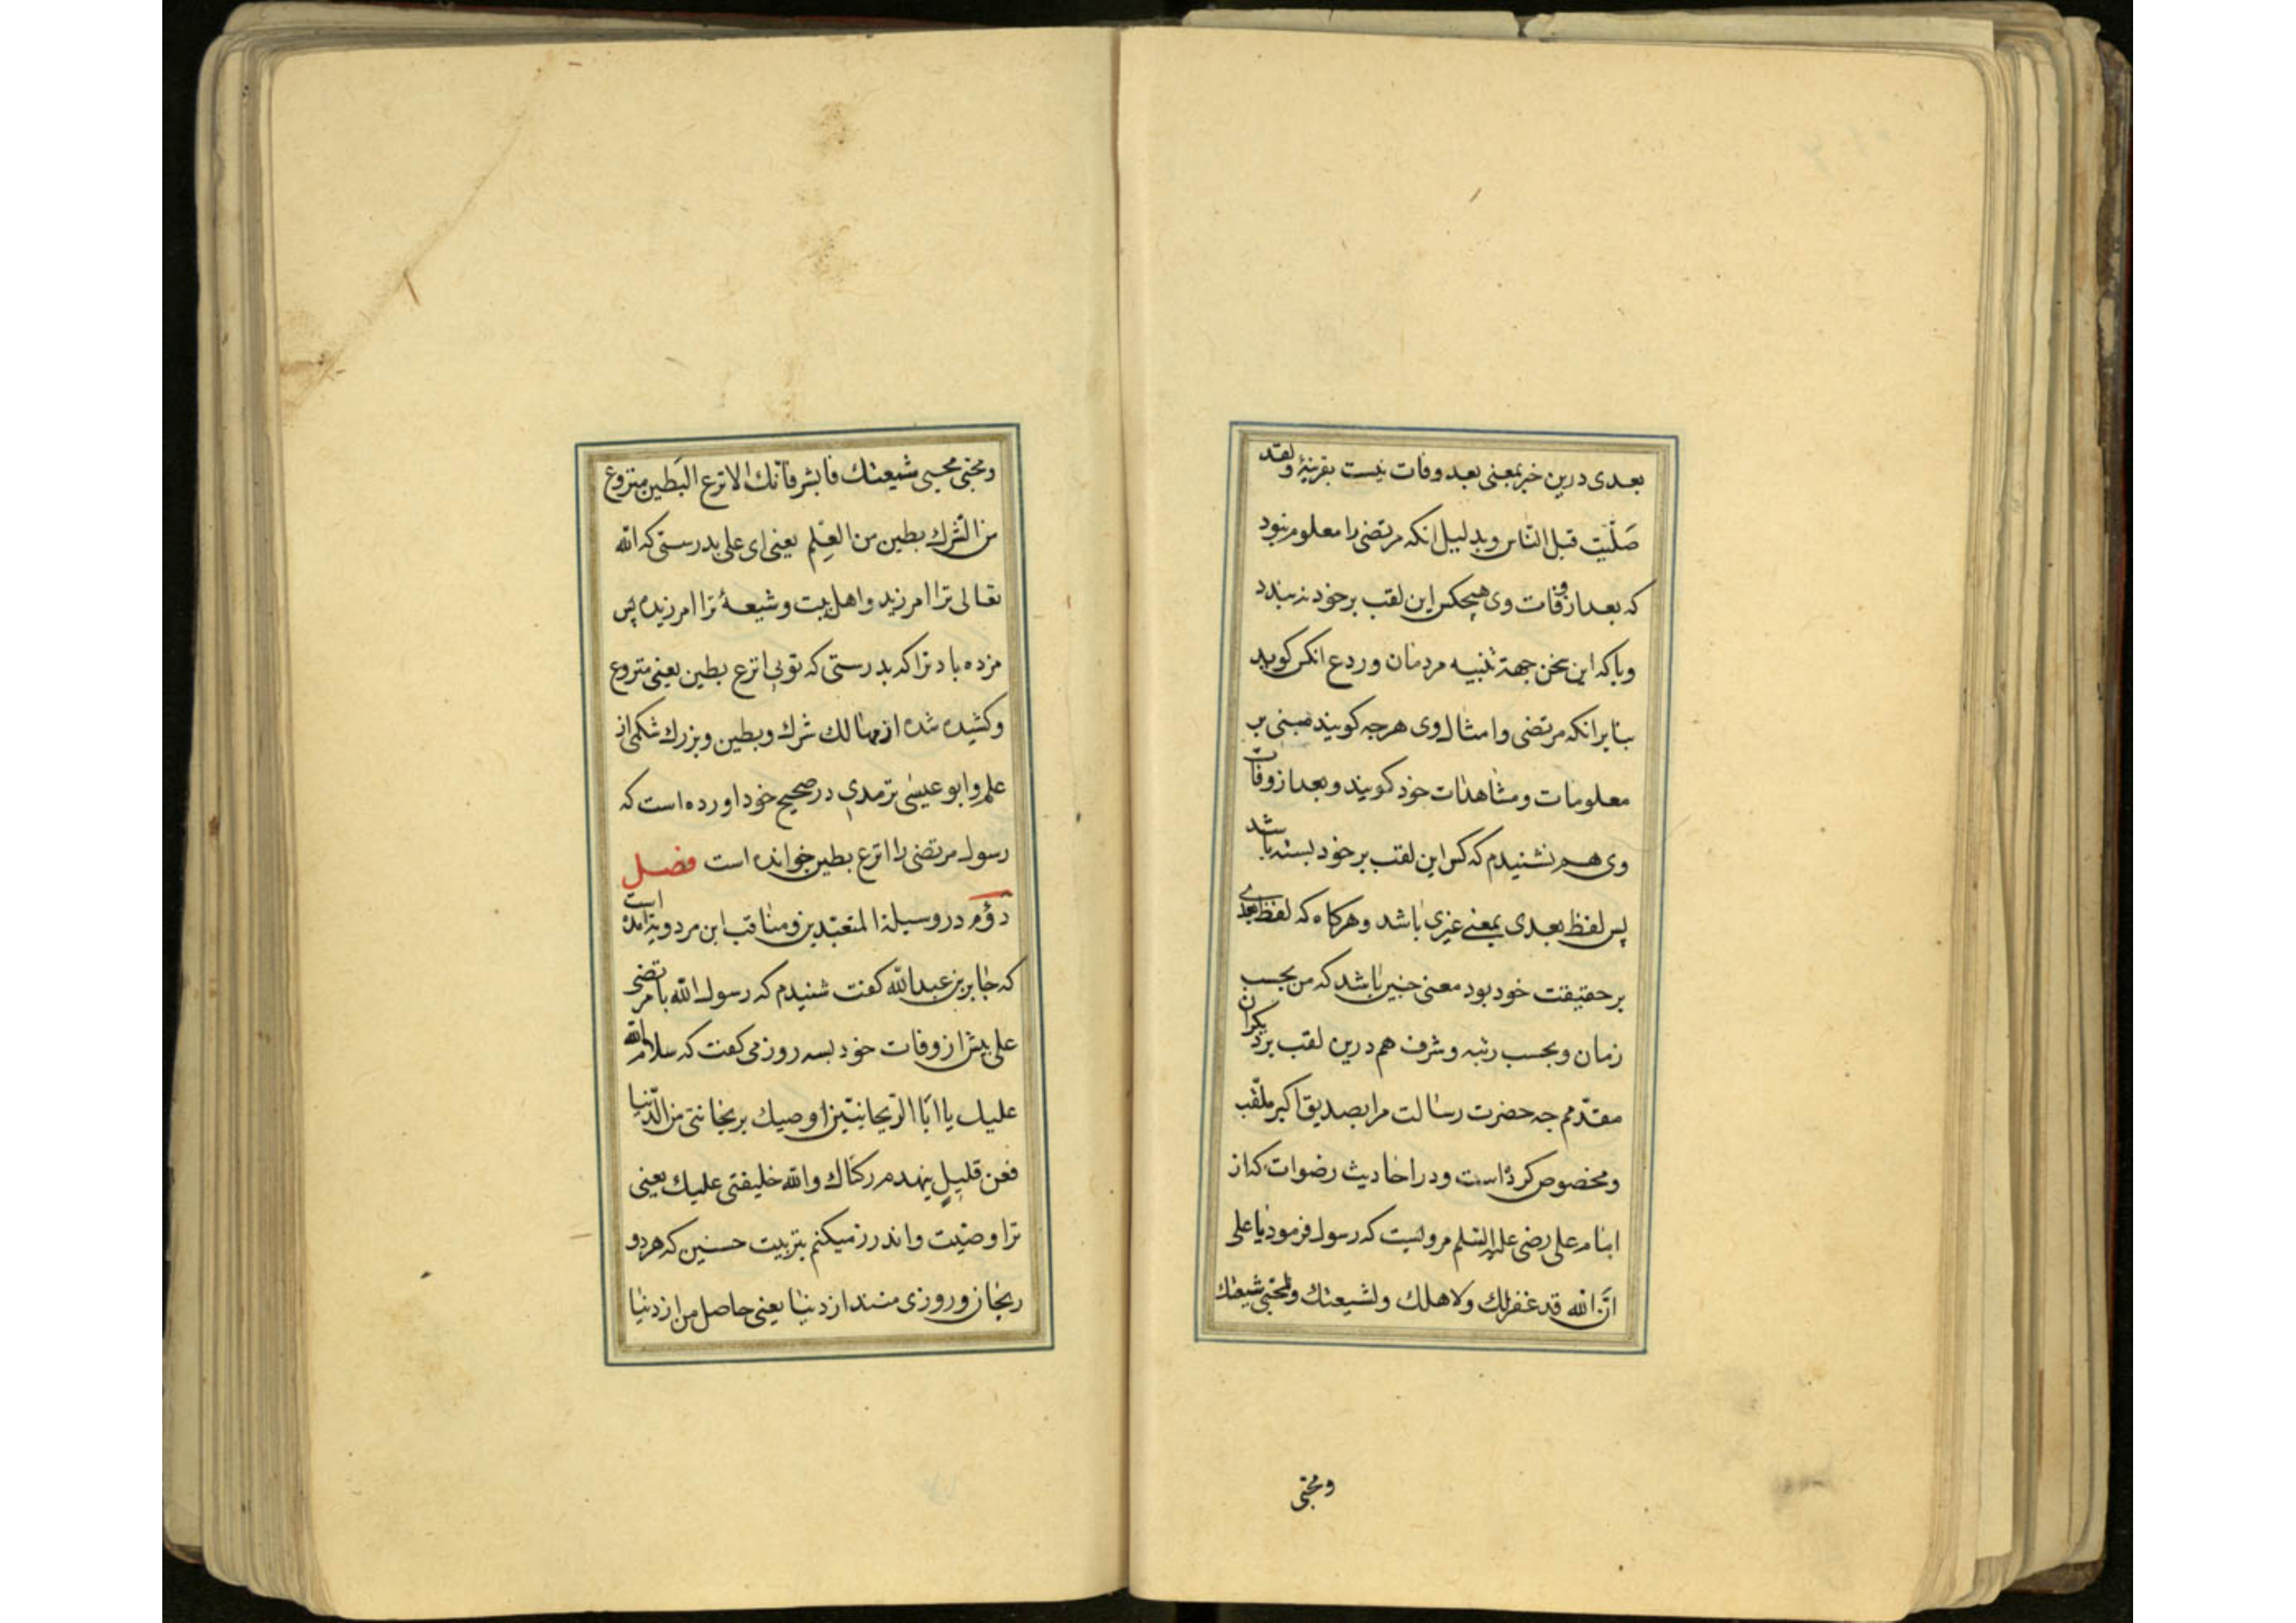 بعدی درین خبر بمعنی بعد وفات نیست بقرینهٔ ولقد
صَلَّیت قبل النّاس وبدلیل انکه مرتضی را معلوم نبود
که بعد از وفات وی هیچکس این لقب برخود نه بندد
وباکه این سخن جهة تنبیه مردمان وردع انکس کوید
بنا برانکه مرتضی وامثال وی هرچه کویند مبنی بر
معلومات ومشاهدات خود کویند وبعد از وفات
وی هم نشنیدم که کس این لقب برخود بسته باشد
پس لفظ بعدی بمعنی غیری باشد وهرکاه که لفظ بعدی
برحقیقت خود بود معنی چنین باشد که من بحسب
زمان وبحسب رتبه وشرف هم درین لقب بردیکران
مقدّمم چه حضرت رسالت مرا بصدیق اکبر ملقّب
ومخصوص کرده است ودر احادیث رضوات که از
امام علی رضی علیه السّلم مرولیت که رسول فرمود یا علی
انّ الله قد غفرلك ولاهلك ولشیعتك ولمحبّی شیعتك
ومحبّی
ومحبّی محبی شیعتك فابشر فانّك الانزع البَطین منزوع
من الشّرك بطین من العِلم یعنی ای علی بدرستی که الله
تعالی ترا امرزید واهل بیت وشیعهٔ ترا امرزیده پس
مزده باد ترا که بدرستی که تویی انزع بطین یعنی منزوع
وکشیده شده از مهالك شرك وبطین وبزرك شکمی از
علم وابو عیسٰی ترمدی در صحیح خود اورده است که
رسول مرتضی را انزع بطین خوانده است فصل
دوّم در وسیلة المتعبّدین ومناقب ابن مردویه امده است
که جابر بن عبد الله کفت شنیدم که رسول الله با مرتضی
علی پیش از وفات خود بسه روز می کفت که سلام الله
علیك یا ابا الرّیحانتین اوصیك بریحانتی من الدّنیا
فعن قلیلٍ ینهدم رکناك والله خلیفتی علیك یعنی
ترا وصیّت واندرز میکنم بتربیت حسنین که هردو
ریحان وروزی منند از دنیا یعنی حاصل من از دنیا